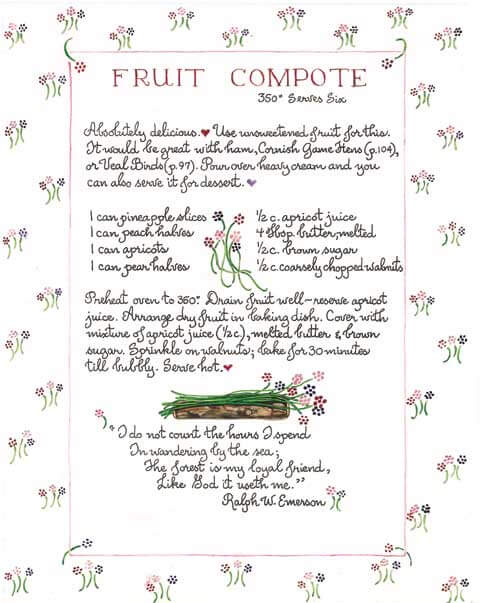 FRUIT COMPOTE
350° Serves Six
Absolutely delicious. ♥ Use unsweetened fruit for this.
It would be great with ham, Cornish Game Hens (p.104),
or Veal Birds (p.97). Pour over heavy cream and you
can also serve it for dessert. ♥
1 can pineapple slices
1 can peach halves
1 can apricots
1 can pear halves
1/2 c. apricot juice
4 Tbsp. butter, melted
1/2 c. brown sugar
1/2 c. coarsely chopped walnuts
Preheat oven to 350°. Drain fruit well – reserve apricot
juice. Arrange dry fruit in baking dish. Cover with
mixture of apricot juice (1/2 c.), melted butter & brown
sugar. Sprinkle on walnuts; bake for 30 minutes
till bubbly. Serve hot. ♥
"I do not count the hours I spend
In wandering by the sea;
The forest is my loyal friend,
Like God it useth me."
Ralph W. Emerson